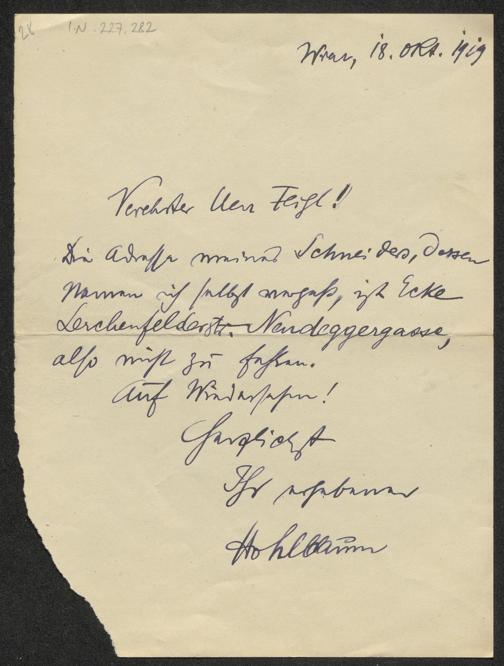 28
I.N. 227.282
Wien, 18. Okt. 1919
Verehrter Herr Feigl!
Die Adresse meines Schneiders, dessen
Namen ich selbst vergaß, ist Ecke
Lerchenfelderstr. Neudeggergasse,
also nicht zu fehlen.
Auf Wiedersehen!
Herzlichst
Ihr ergebener
Hohlbaum